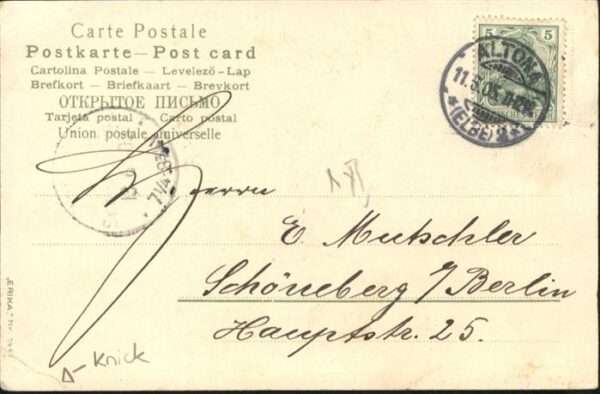 Carte Postale
Postkarte — Post card
Cartolina Postale — Levelező-Lap
Brefkort — Briefkaart — Brevkort
ОТКРЫТОЕ ПИСЬМО
Tarjeta postal — Carto postal
Union postale universelle
5 5
ALTONA
(ELBE)
Herrn
E. Mutschler
Schöneberg b/Berlin
Hauptstr. 25.
"ERIKA"
Knick